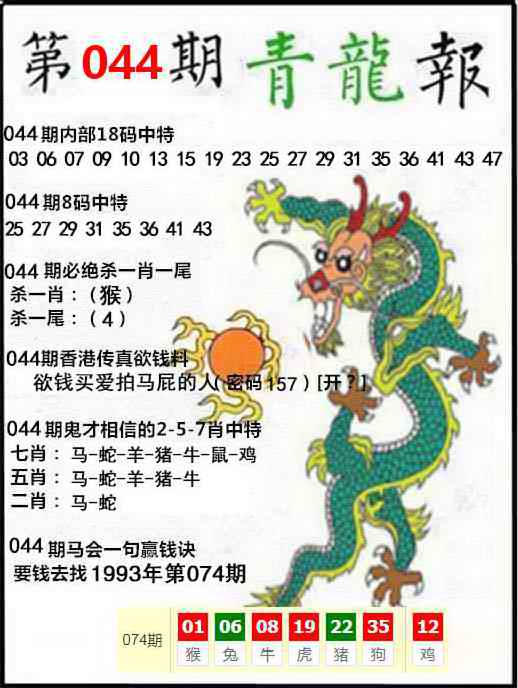 第044期 青龍報
044期内部18码中特
03 06 07 09 10 13 15 19 23 25 27 29 31 35 36 41 43 47
044期8码中特
25 27 29 31 35 36 41 43
044期必绝杀一肖一尾
杀一肖：（猴）
杀一尾：（4）
044期香港传真欲钱料
欲钱买爱拍马屁的人(密码157）[开？]
044期鬼才相信的2-5-7肖中特
七肖：马-蛇-羊-猪-牛-鼠-鸡
五肖：马-蛇-羊-猪-牛
二肖：马-蛇
044期马会一句赢钱诀
要钱去找1993年第074期
074期 01 06 08 19 22 35 12
猴 兔 牛 虎 猪 狗 鸡